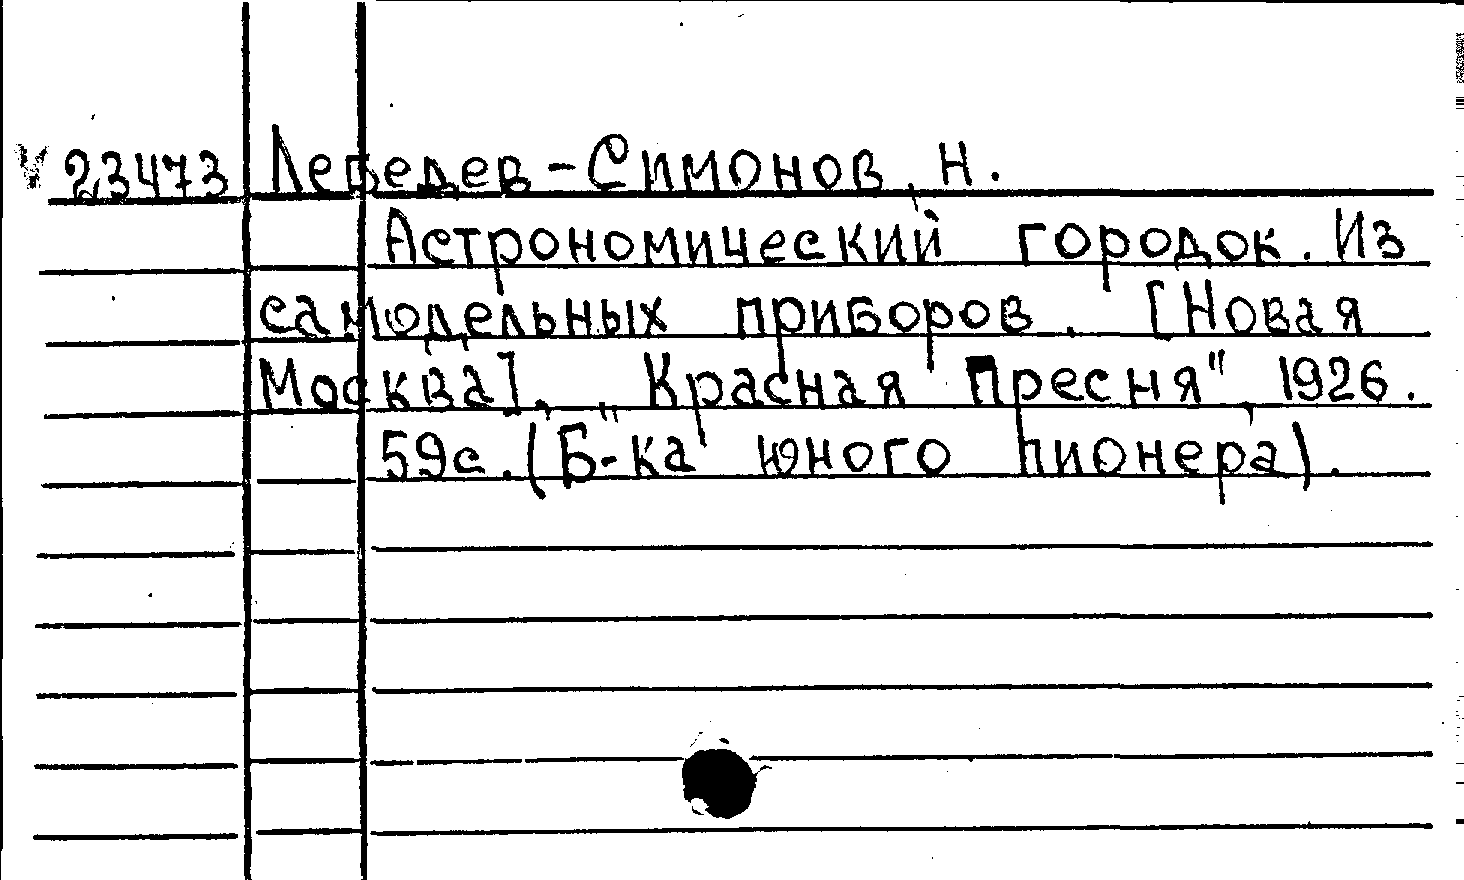 V 23473 Лебедев-Симонов, Н.
Астрономический городок. Из
самодельных приборов. [Новая
Москва], „Красная Пресня", 1926.
59с. (Б-ка юного пионера).